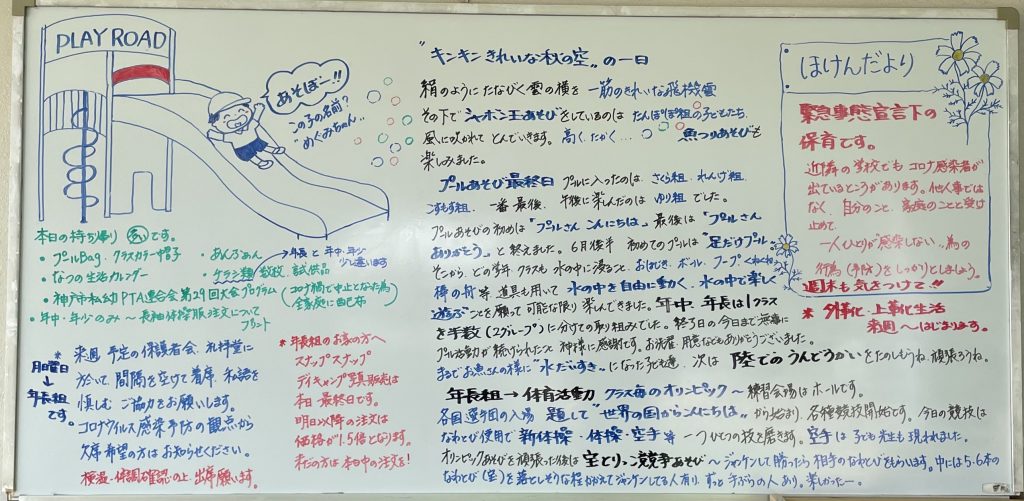 PLAY ROAD
あそぼー!!
この子の名前?
"めぐみちゃん"
本日の持ち帰り です。
・プールBag. クラスカラー帽子
・なつの生活カレンダー
・あんぷん
・ケラン類 試供品
年長と年中・年少
少し違います
・神戸市私幼PTA連合会第29回大会プログラム
コロナ禍で中止となった為
全家庭に配布
・年中・年少のみ～長袖体操服注文について
プリント
月曜日
↓
年長組
です
* 来週 予定の保護者会、礼拝堂に
於いて、間隔を空けて着席、私語を
慎しむ ご協力をお願いします。
コロナウィルス感染予防の観点から
欠席希望の方はお知らせください。
検温・体調確認の上、出席願います。
*年長組のお家の方へ
スナップスナップ
デイキャンプ写真販売は
本日最終日です。
明日以降の注文は
価格が1.5倍となります。
まだの方は本日中の注文を!
"キンキンきれいな秋の空"の一日
絹のようにたなびく雲の横を 一筋のきれいな飛行機雲
その下でシャボン玉あそびをしているのは たんぽぽ組の子どもたち。
風に吹かれて とんでいきます。高く、たかく… 魚つりあそびも
楽しみました。
プールあそび最終日 プールに入ったのは、さくら組、れんげ組、
こすもす組、一番最後、午後に楽しんだのは ゆり組でした。
プールあそびの初めは"プールさん こんにちは"。最後は"プールさん
ありがとう"と終えました。6月後半 初めてのプールは"足だけプール"
そこから、どの学年、クラスも水の中に浸ること、おはじき、ボール、フープくぐり
棒の舟等 道具も用いて 水の中を自由に動く、水の中で楽しく
遊ぶことを願って可能な限り楽しんできました。年中、年長は1クラス
を半数(2グループ)に分けての取り組みでした。終了日の今日まで無事に
プール活動が続けられたこと 神様に感謝です。お洗濯、用意などもありがとうございました。
まるでお魚さんの様に"水だいすき"になった子ども達、次は 陸でのうんどうかいをたのしもうね、頑張ろうね。
年長組→体育活動 クラス毎のオリンピック～練習会場はホールです。
各国選手団の入場 題して"世界の国からこんにちは"から始まり、各種競技開始です。今日の競技は
なわとび使用で 新体操・体操・空手等 一つひとつの技を磨きます。空手は子ども先生も現われました。
オリンピックあそびを頑張った後は 宝とりっこ競争あそび～ジャンケンして勝ったら相手のなわとびをもらいます。中には5・6本の
なわとび(宝)を落としそうな程かかえてジャンケンしてる人有り、ずっと手ぶらの人あり。楽しかったー。
ほけんだより
緊急事態宣言下の
保育です。
近隣の学校でもコロナ感染者が
出ているところがあります。他人事では
なく、自分のこと、家庭のことと受け
止めて、
一人ひとりが"感染しない"為の
行為(予防)をしっかりとしましょう。
週末も気をつけて!!
* 外靴化・上靴化生活
来週～はじまります。